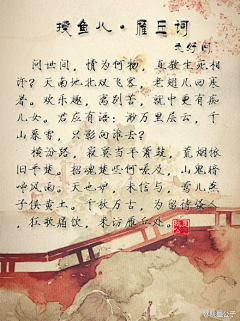 摸鱼儿·雁丘词
元好问
问世间，情为何物，直教生死相
许？天南地北双飞客，老翅几回寒
暑。欢乐趣，离别苦，就中更有痴
儿女。君应有语：渺万里层云，千
山暮雪，只影向谁去？
横汾路，寂寞当年箫鼓，荒烟依
旧平楚。招魂楚些何嗟及，山鬼暗
啼风雨。天也妒，未信与，莺儿燕
子俱黄土。千秋万古，为留待骚人
，狂歌痛饮，来访雁丘处。